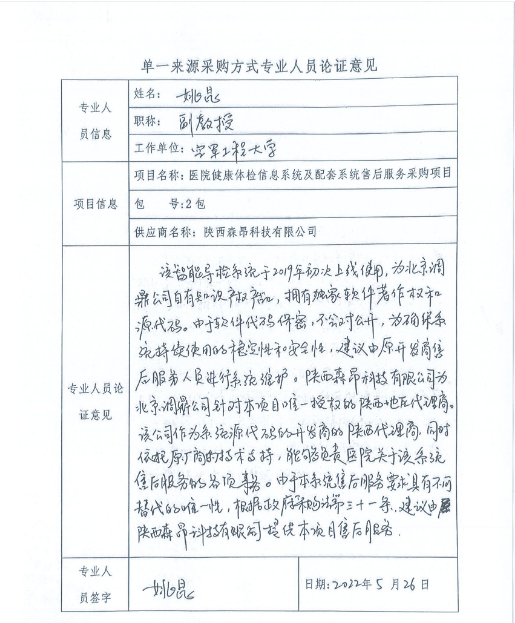 单一来源采购方式专业人员论证意见
专业人
员信息
姓名: 姚昆
职称: 副教授
工作单位: 空军工程大学
项目信息
项目名称: 医院健康体检信息系统及配套系统售后服务采购项目
包 号: 2包
供应商名称: 陕西森昂科技有限公司
专业人员论
证意见
该智能导检系统于2019年初次上线使用,为北京调
鼎公司自有知识产权产品,拥有独家软件著作权和
源代码。由于软件代码保密,不会对公开,为确保系
统持续使用的稳定性和安全性,建议由原开发商售
后服务人员进行系统维护。陕西森昂科技有限公司为
北京调鼎公司针对本项目唯一授权的陕西地区代理商。
该公司作为系统源代码的开发商的陕西代理商,同时
依托原厂商的技术支持,能够负责医院关于该系统
售后服务的各项事务。由于本系统售后服务要求具有不可
替代的唯一性,根据政府采购法第三十一条,建议由
陕西森昂科技有限公司提供本项目售后服务.
专业人
员签字
姚昆
日期: 2022年5月26日